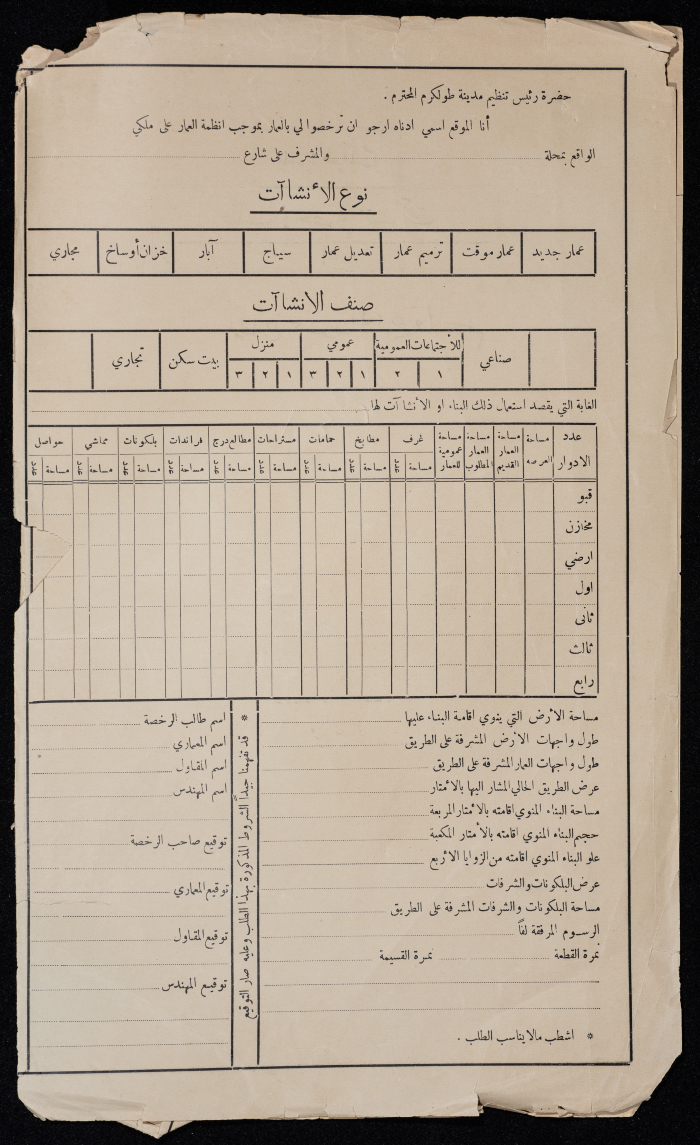 حضرة رئيس تنظيم مدينة طولكرم المحترم .
أنا الموقع اسمي ادناه ارجو ان ترخصوا لي بالعمار بموجب انظمة العمار على ملكي
الواقع بمحلة والمشرف على شارع
نوع الأنشاآت
عمار جديد عمار موقت ترميم عمار تعديل عمار سيياج آبار خزان أوساخ مجاري
صنف الانشاآت
صناعي للأجتماعات العمومية عمومي منزل بيت سكن تجاري
١ ٢ ١ ٢ ٣ ١ ٢ ٣
الغاية التي يقصد استعمال ذلك البناء او الأنشاآت لها
عدد الادوار مساحة العرصه مساحة العمار القديم مساحة العمار المطلوب مساحة عمومية للعمار غرف مطابخ حمامات مستراحات مطالع درج فراندات بلكونات مماشي حواصل
مساحة عدد مساحة عدد مساحة عدد مساحة عدد مساحة عدد مساحة عدد مساحة عدد مساحة عدد مساحة عدد
قبو
مخازن
ارضي
اول
ثانى
ثالث
رابع
مساحة الأرض التي ينوي اقامة البناء عليها
طول واجهات الأرض المشرفة على الطريق
طول واجهات العمار المشرفة على الطريق
عرض الطريق الحالي المشار اليها بالأمتار
مساحة البناء المنوي اقامته بالأمتار المربعة
حجم البناء المنوي اقامته بالأمتار المكعبة
علو البناء المنوي اقامته من الزوايا الاربع
عرض البلكونات والشرفات
مساحة البلكونات والشرفات المشرفة على الطريق
الرسوم المرفقة لفاً
نمرة القطعة نمرة القسيمة
* اشطب مالا يناسب الطلب .
* قد تفهمنا جيداً الشروط المذكورة بهذا الطلب وعليه صار التوقيع
اسم طالب الرخصة
اسم المعماري
اسم المقاول
اسم المهندس
توقيع صاحب الرخصة
توقيع المعماري
توقيع المقاول
توقيع المهندس